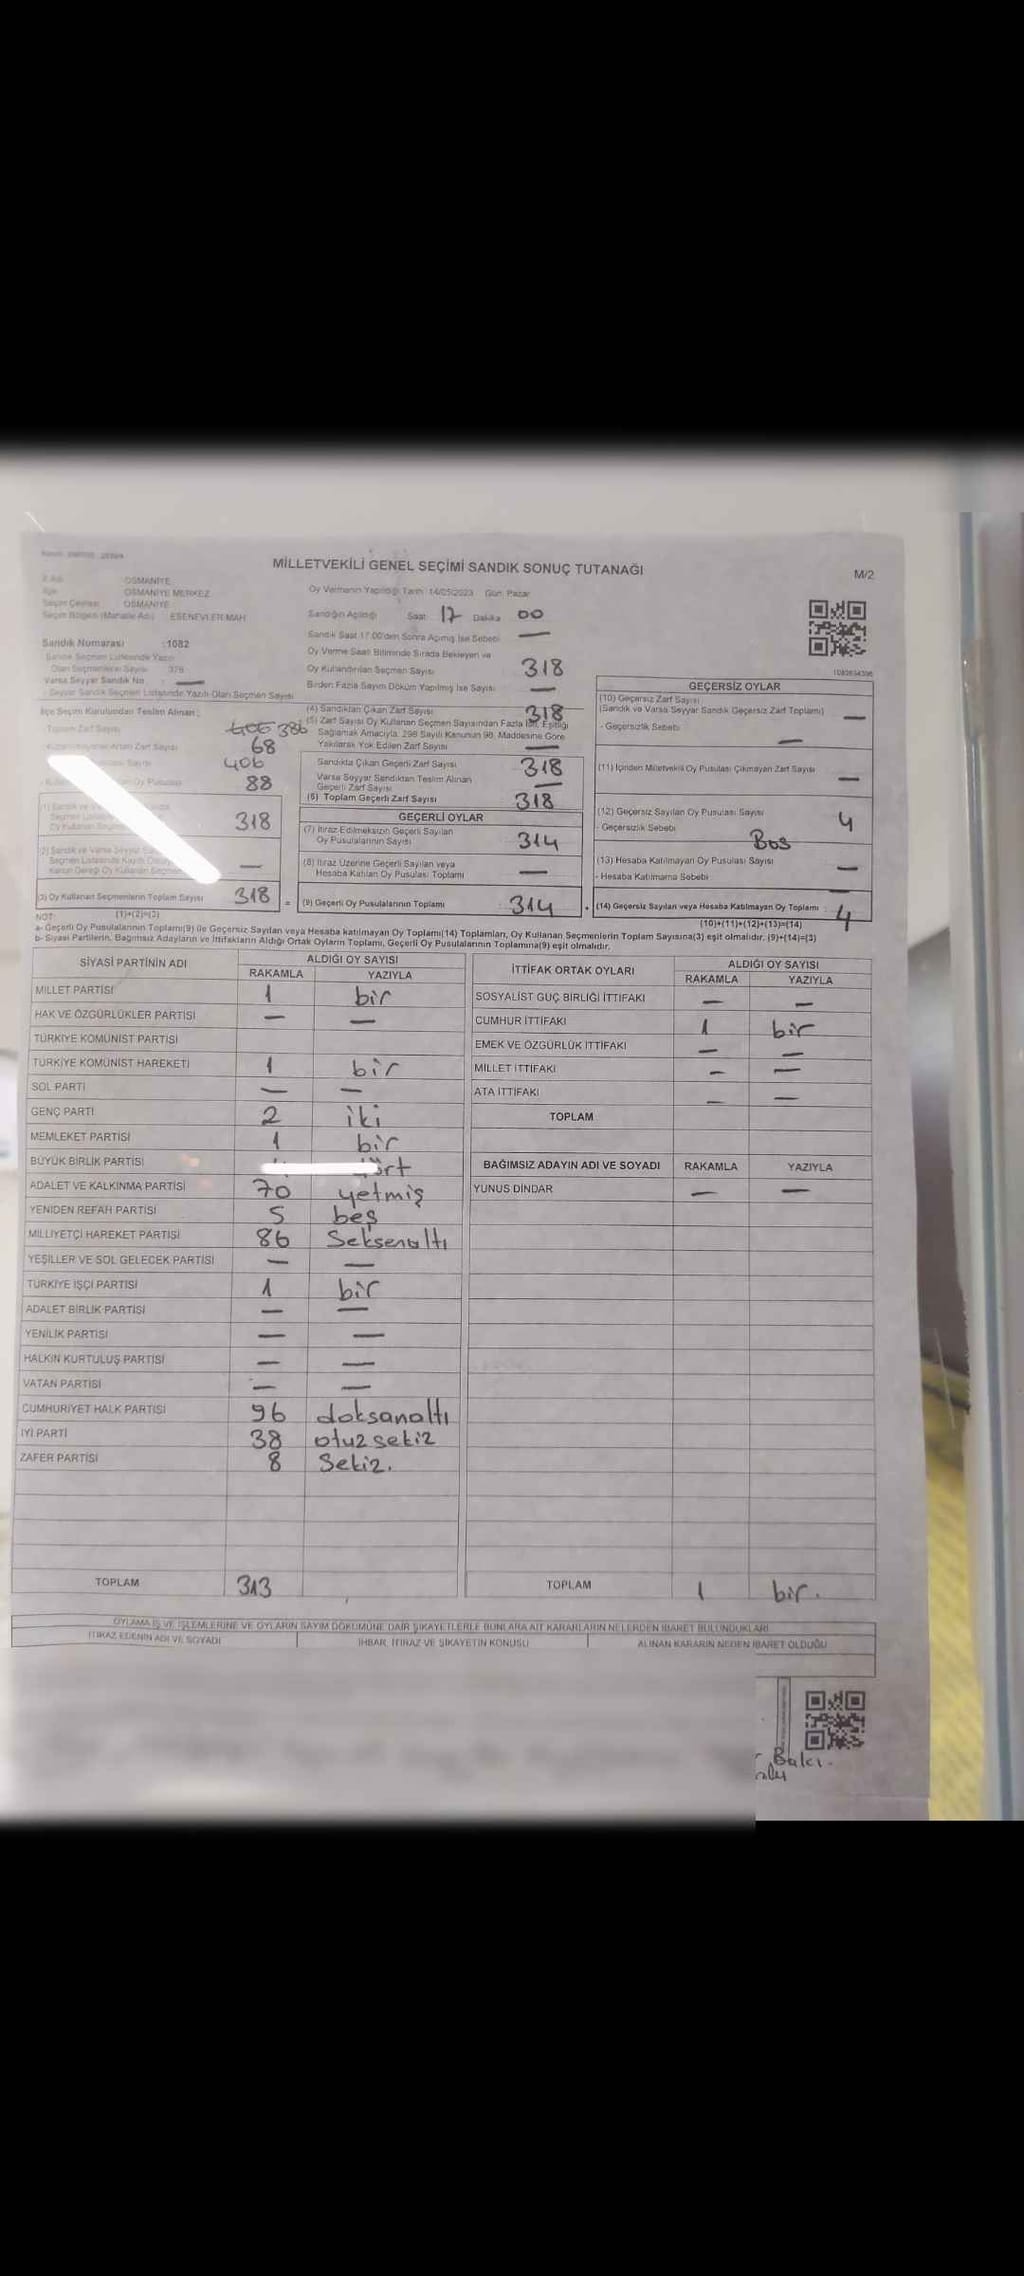 MİLLETVEKİLİ GENEL SEÇİMİ SANDIK SONUÇ TUTANAĞI
M/2
OSMANİYE
OSMANİYE MERKEZ
OSMANİYE
ESENEVLER MAH
Oy Vermenin Yapıldığı Tarih 14/05/2023 Gün Pazar
Sandığın Açıldığı Saat 17 Dakika 00
Sandık Saat 17.00'den Sonra Açılmış İse Sebebi —
Oy Verme Saati Bitiminde Sırada Bekleyen ve
Oy Kullandırılan Seçmen Sayısı 318
Birden Fazla Sayım Döküm Yapılmış İse Sayısı —
Sandık Numarası :1082
Sandık Seçmen Listesinde Yazılı
Olan Seçmenlerin Sayısı 379
Varsa Seyyar Sandık No : —
Seyyar Sandık Seçmen Listesinde Yazılı Olan Seçmen Sayısı
İlçe Seçim Kurulundan Teslim Alınan :
Toplam Zarf Sayısı 406 386
Artan Zarf Sayısı 68
Sayısı 406
Oy Pusulası 88
318
—
(3) Oy Kullanan Seçmenlerin Toplam Sayısı 318 =
(1)+(2)=(3)
(4) Sandıktan Çıkan Zarf Sayısı 318
(5) Zarf Sayısı Oy Kullanan Seçmen Sayısından Fazla İse, Eşitliği
Sağlamak Amacıyla, 298 Sayılı Kanunun 98. Maddesine Göre
Yakılarak Yok Edilen Zarf Sayısı —
Sandıkta Çıkan Geçerli Zarf Sayısı 318
Varsa Seyyar Sandıktan Teslim Alınan
Geçerli Zarf Sayısı —
(6) Toplam Geçerli Zarf Sayısı 318
GEÇERLİ OYLAR
(7) İtiraz Edilmeksizin Geçerli Sayılan
Oy Pusulalarının Sayısı 314
(8) İtiraz Üzerine Geçerli Sayılan veya
Hesaba Katılan Oy Pusulası Toplamı —
(9) Geçerli Oy Pusulalarının Toplamı 314 +
GEÇERSİZ OYLAR
(10) Geçersiz Zarf Sayısı
(Sandık ve Varsa Seyyar Sandık Geçersiz Zarf Toplamı) —
- Geçersizlik Sebebi —
(11) İçinden Milletvekili Oy Pusulası Çıkmayan Zarf Sayısı —
(12) Geçersiz Sayılan Oy Pusulası Sayısı 4
- Geçersizlik Sebebi Bos
(13) Hesaba Katılmayan Oy Pusulası Sayısı —
- Hesaba Katılmama Sebebi —
(14) Geçersiz Sayılan veya Hesaba Katılmayan Oy Toplamı : 4
(10)+(11)+(12)+(13)=(14)
NOT:
a- Geçerli Oy Pusulasının Toplamı(9) ile Geçersiz Sayılan veya Hesaba katılmayan Oy Toplamı(14) Toplamları, Oy Kullanan Seçmenlerin Toplam Sayısına(3) eşit olmalıdır. (9)+(14)=(3)
b- Siyasi Partilerin, Bağımsız Adayların ve İttifakların Aldığı Ortak Oyların Toplamı, Geçerli Oy Pusulalarının Toplamına(9) eşit olmalıdır.
SİYASİ PARTİNİN ADI ALDIĞI OY SAYISI
RAKAMLA YAZIYLA
MİLLET PARTİSİ 1 bir
HAK VE ÖZGÜRLÜKLER PARTİSİ — —
TÜRKİYE KOMÜNİST PARTİSİ
TÜRKİYE KOMÜNİST HAREKETİ 1 bir
SOL PARTİ — —
GENÇ PARTİ 2 iki
MEMLEKET PARTİSİ 1 bir
BÜYÜK BİRLİK PARTİSİ
ADALET VE KALKINMA PARTİSİ 70 yetmiş
YENİDEN REFAH PARTİSİ 5 beş
MİLLİYETÇİ HAREKET PARTİSİ 86 Seksenaltı
YEŞİLLER VE SOL GELECEK PARTİSİ — —
TÜRKİYE İŞÇİ PARTİSİ 1 bir
ADALET BİRLİK PARTİSİ — —
YENİLİK PARTİSİ — —
HALKIN KURTULUŞ PARTİSİ — —
VATAN PARTİSİ — —
CUMHURİYET HALK PARTİSİ 96 doksanaltı
İYİ PARTİ 38 otuz sekiz
ZAFER PARTİSİ 8 Sekiz.
TOPLAM 313
İTTİFAK ORTAK OYLARI ALDIĞI OY SAYISI
RAKAMLA YAZIYLA
SOSYALİST GÜÇ BİRLİĞİ İTTİFAKI — —
CUMHUR İTTİFAKI 1 bir
EMEK VE ÖZGÜRLÜK İTTİFAKI — —
MİLLET İTTİFAKI — —
ATA İTTİFAKI — —
TOPLAM
BAĞIMSIZ ADAYIN ADI VE SOYADI RAKAMLA YAZIYLA
YUNUS DİNDAR — —
TOPLAM 1 bir.
OYLAMA İŞ VE İŞLEMLERİNE VE OYLARIN SAYIM DÖKÜMÜNE DAİR ŞİKAYETLERLE BUNLARA AİT KARARLARIN NELERDEN İBARET BULUNDUKLARI
İTİRAZ EDENİN ADI VE SOYADI İHBAR, İTİRAZ VE ŞİKAYETİN KONUSU ALINAN KARARIN NEDEN İBARET OLDUĞU